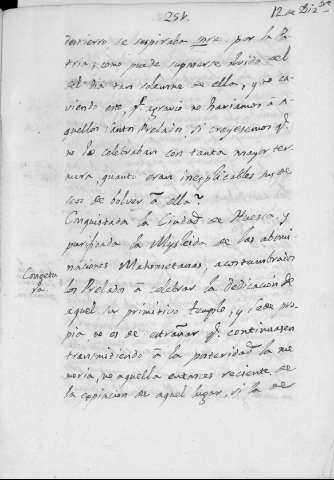 254.
12 de Diz.re
destierro, se suspiraba spre. por la Pa
tria; como puede suponerse olvido del
el dia tan solemne de ella, y no ca
viendo este, q.e agravio no hariamos á a
quellos santos Prelados, si creyesemos q.e
no lo celebraban con tanta mayor ter
nura, quanto eran inexplicables sus de
seos de bolver á ella?
Conquistada la Ciudad de Huesca, y
purificada la Mysleida de las abomi
naciones Mahometanas, acostumbrados
Congetu
ra.
los Prelados á celebrar la dedicación de
aquel su primitivo templo, y Sede pro
pia no es de estrañar q.e continuasen
transmitiendo á la posteridad la me
moria, no aquella entonces reciente de
la expiacion de aquel lugar, si la de